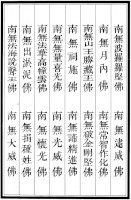 南無波羅羅堅佛
南無遠威佛
南無月內佛
南無常智作化佛
南無山王勝藏王佛
南無金剛堅佛
南無祠施佛
南無精進佛
南無無量光佛
南無光威佛
南無法華高幢雲佛
南無光佛
南無出淤泥佛
南無種姓佛
南無法海聲王佛
南無大威佛